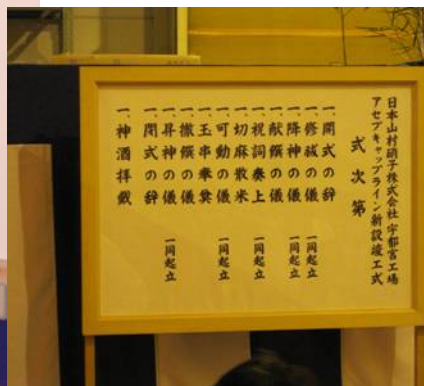 日本山村硝子株式会社 宇都宮工場
アセプキャップライン新設竣工式
式次第
一、開式の辞
一、修祓の儀 一同起立
一、降神の儀 一同起立
一、献饌の儀
一、祝詞奏上 一同起立
一、切麻散米
一、可動の儀 一同起立
一、玉串奉奠
一、撤饌の儀
一、昇神の儀 一同起立
一、閉式の辞
一、神酒拝戴